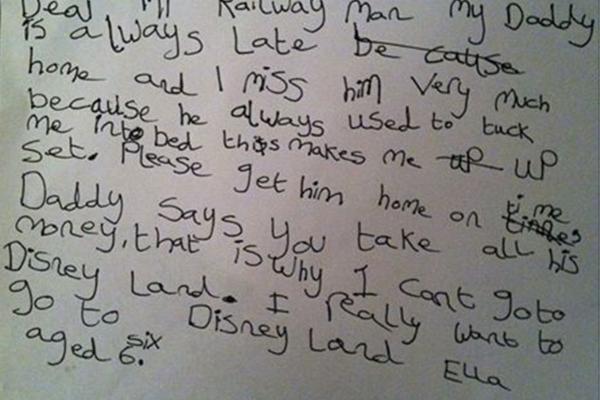 Dear Mr Railway Man My Daddy
is always Late be cause
home and I miss him Very Much
because he always used to tuck
me into bed this makes me up UP
set. Please get him home on time
Daddy says you take all his
money, that is why I cant go to
Disney Land. I really want to
go to Disney Land Ella
aged six 6.